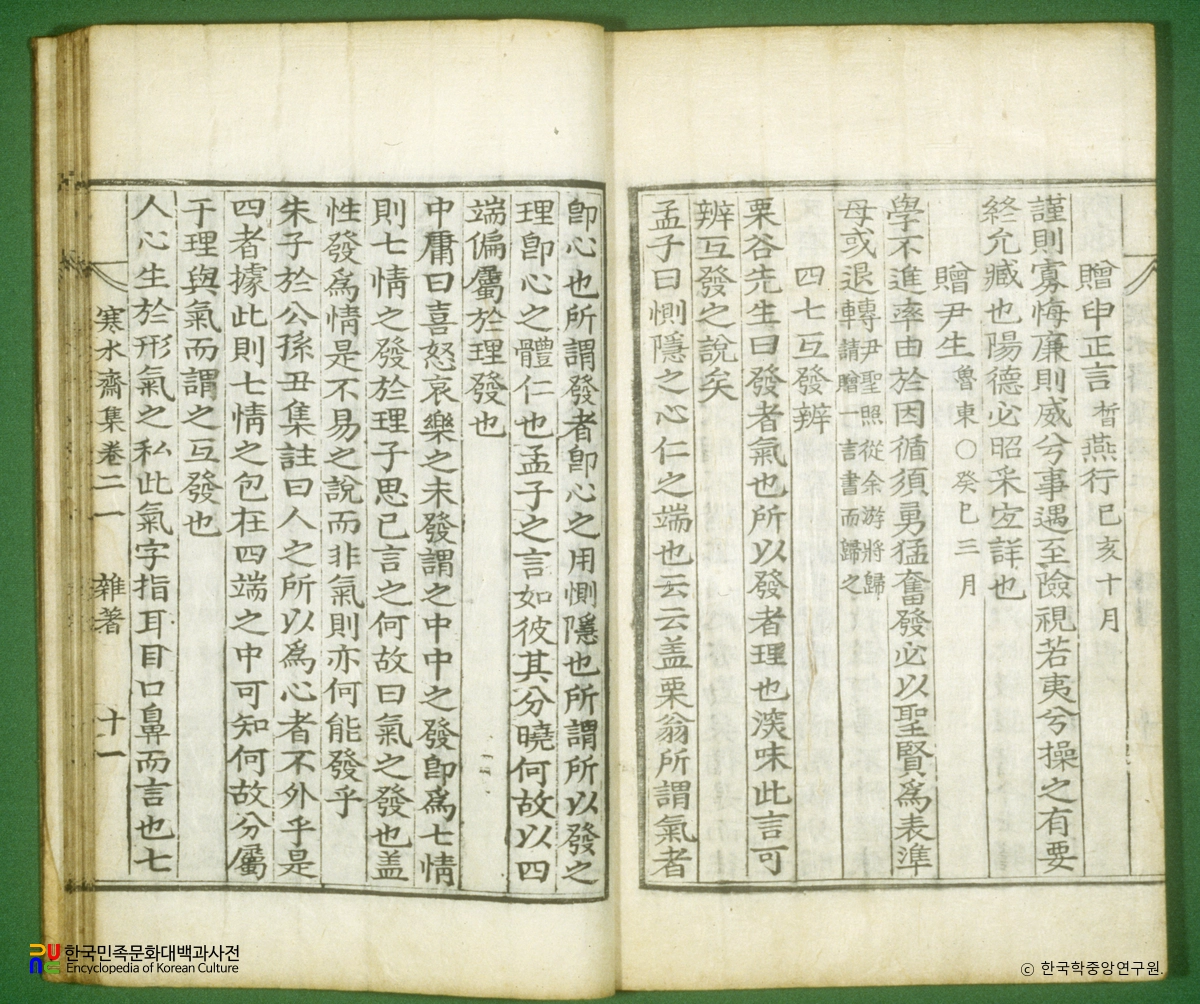 贈申正言晳燕行己亥十月
謹則寡悔廉則威兮事遇至險視若夷兮操之有要
終允臧也陽德必昭采宐詳也
贈尹生魯東○癸巳三月
學不進率由於因循須勇猛奮發必以聖賢爲表準
母或退轉尹聖照從余游將歸
請贈一言書而歸之
四七互發辨
栗谷先生曰發者氣也所以發者理也淡味此言可
辨互發之說矣
孟子曰惻隱之心仁之端也云云盖栗翁所謂氣者
卽心也所謂發者卽心之用惻隱也所謂所以發之
理卽心之體仁也孟子之言如彼其分曉何故以四
端偏屬於理發也
中庸曰喜怒哀樂之未發謂之中中之發卽爲七情
則七情之發於理子思已言之何故曰氣之發也盖
性發爲情是不易之說而非氣則亦何能發乎
朱子於公孫丑集註曰人之所以爲心者不外乎是
四者據此則七情之包在四端之中可知何故分屬
于理與氣而謂之互發也
人心生於形氣之私此氣字指耳目口鼻而言也七
寒水齋集卷二一 雜著 十一
한국민족문화대백과사전
Encyclopedia of Korean Culture
© 한국학중앙연구원